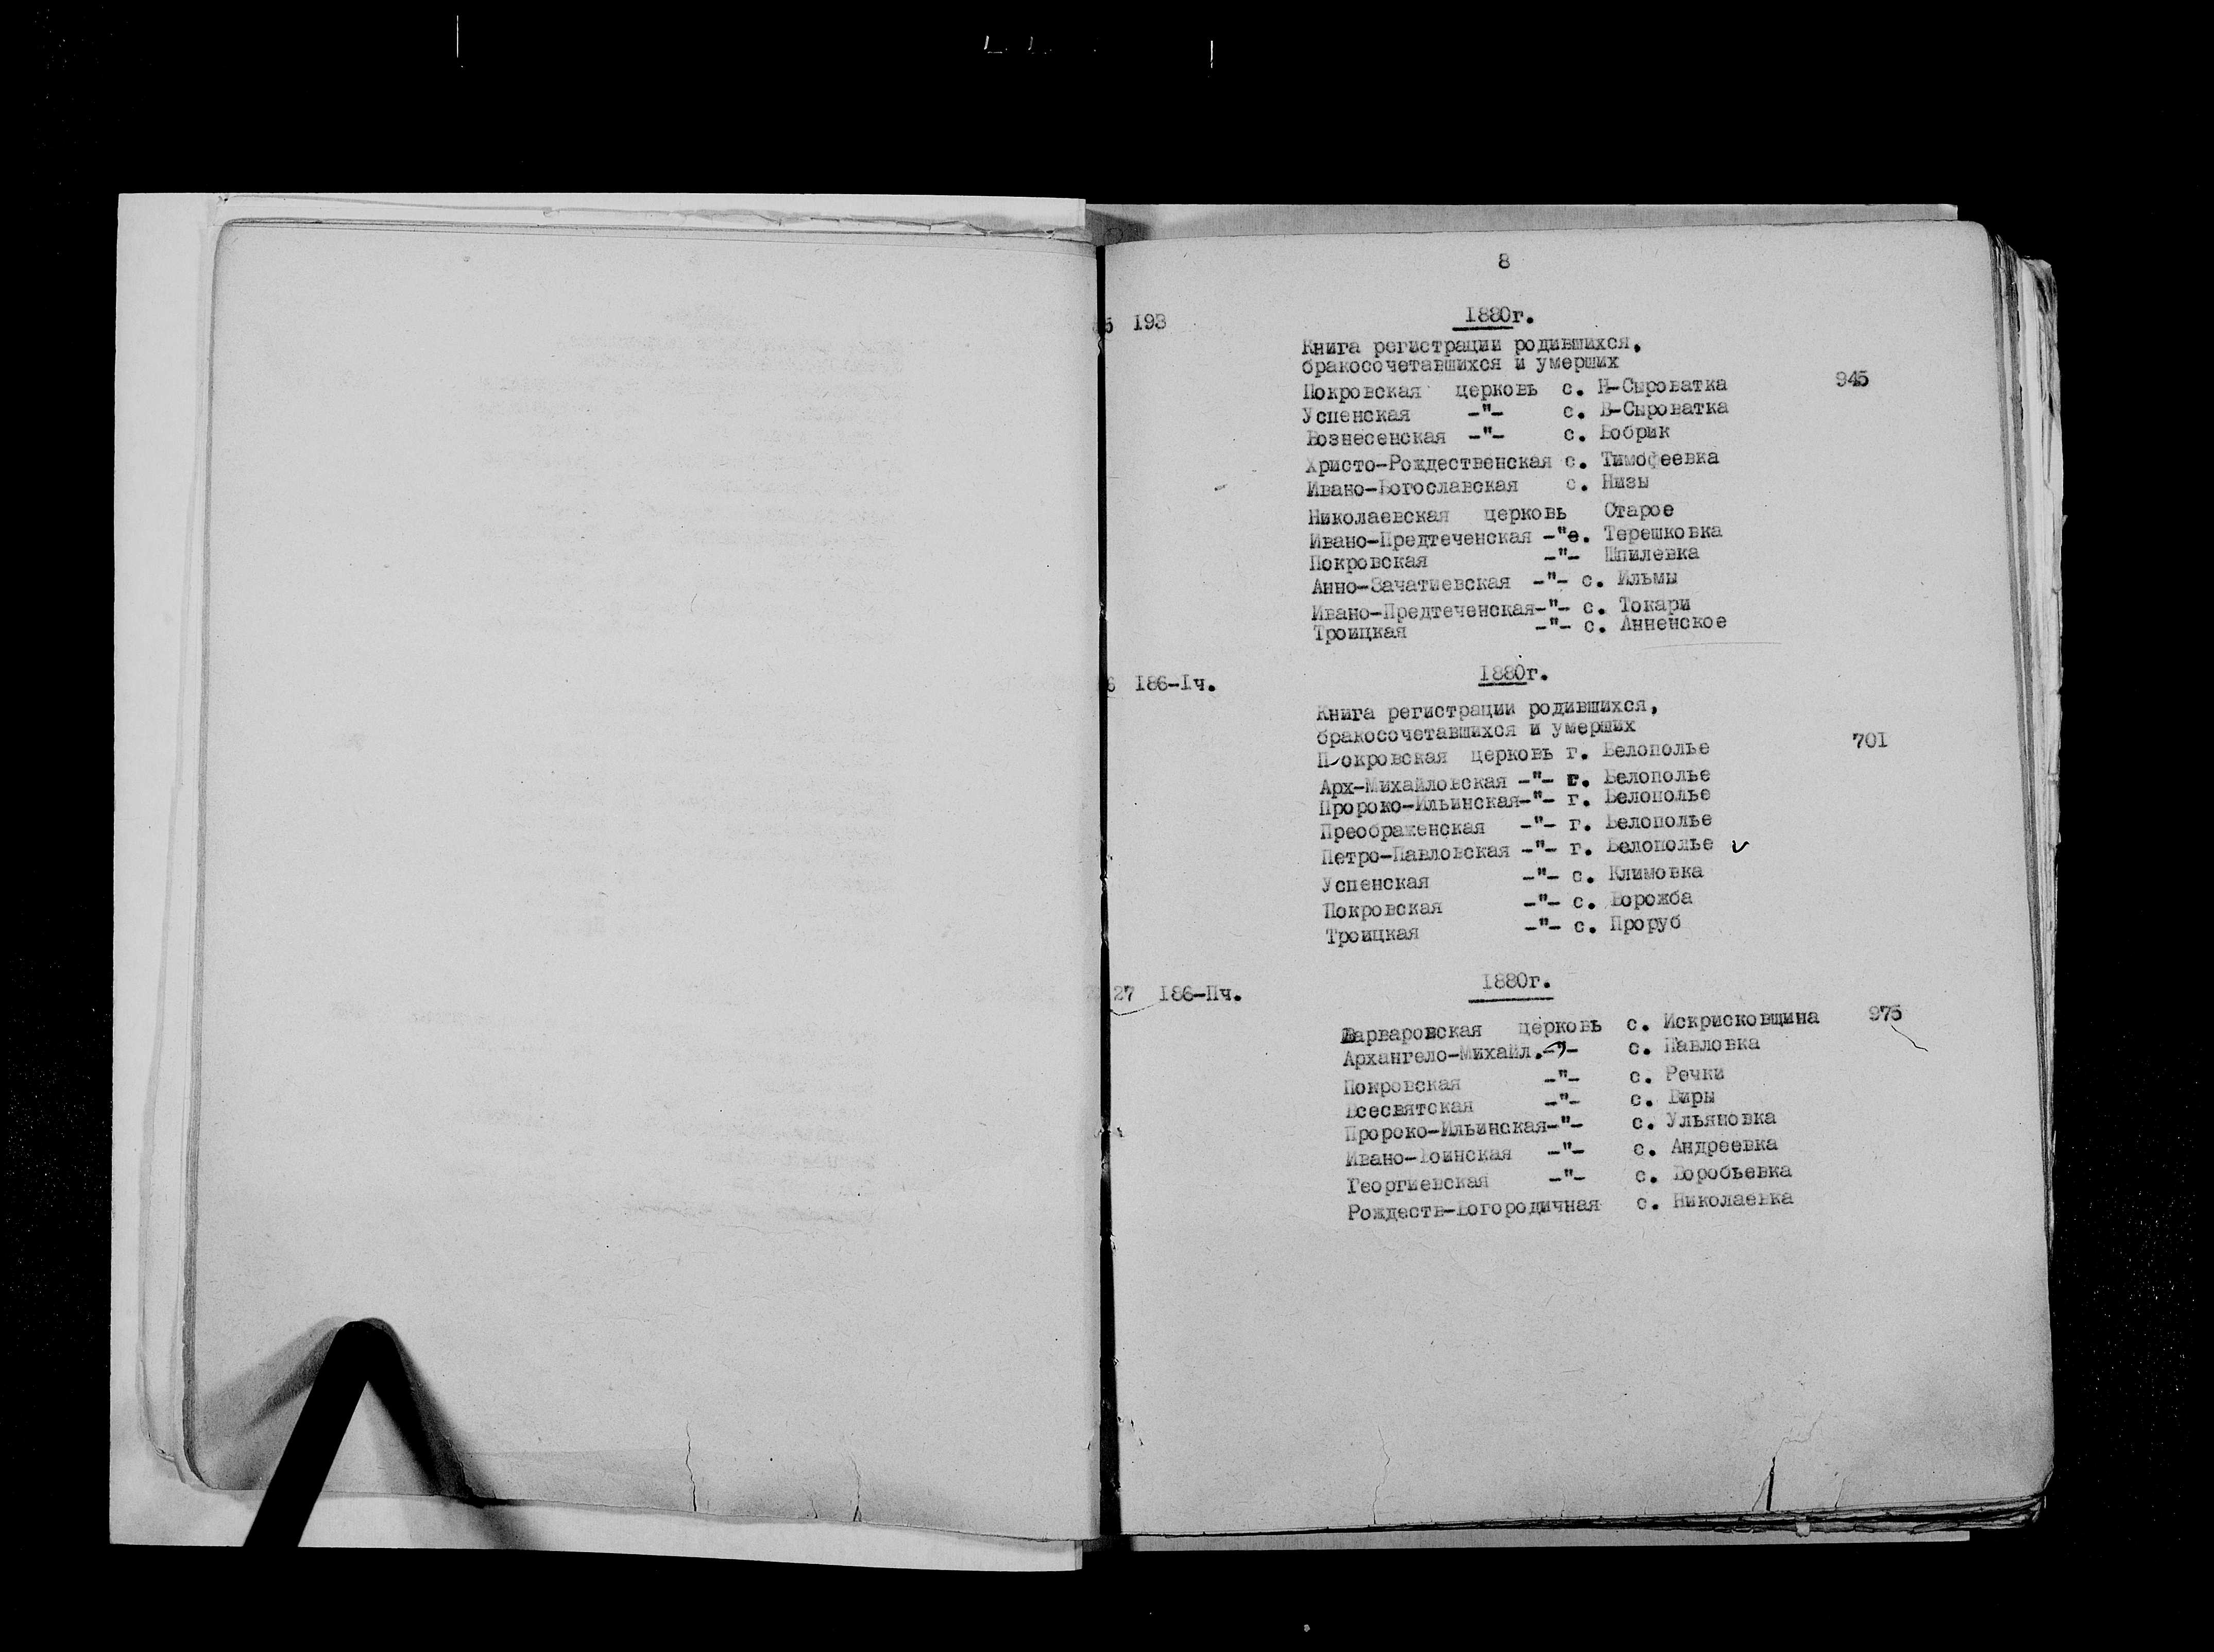 8
5 193 1880г.
Книга регистрации родившихся,
бракосочетавшихся и умерших
Покровская церковь с. Н-Сыроватка 945
Успенская -"- с. В-Сыроватка
Вознесенская -"- с. Бобрик
Христо-Рождественская с. Тимофеевка
Ивано-Богославская с. Низы
Николаевская церковь Старое
Ивано-Предтеченская -"с. Терешковка
Покровская -"- Шпилевка
Анно-Зачатиевская -"- с. Ильмы
Ивано-Предтеченская-"- с. Токари
Троицкая -"- с. Анненское
6 186-Iч. 1880г.
Книга регистрации родившихся,
бракосочетавшихся и умерших
Покровская церковь г. Белополье 701
Арх-Михайловская -"- г. Белополье
Пророко-Ильинская-"- г. Белополье
Преображенская -"- г. Белополье
Петро-Павловская -"- г. Белополье
Успенская -"- с. Климовка
Покровская -"- с. Ворожба
Троицкая -"- с. Проруб
27 186-IIч. 1880г.
Варваровская церковь с. Искрисковщина 975
Архангело-Михайл.-"- с. Павловка
Покровская -"- с. Речки
Всесвятская -"- с. Виры
Пророко-Ильинская-"- с. Ульяновка
Ивано- -"- с. Андреевка
Георгиевская -"- с. Воробьевка
Рождеств-Богородичная с. Николаевка